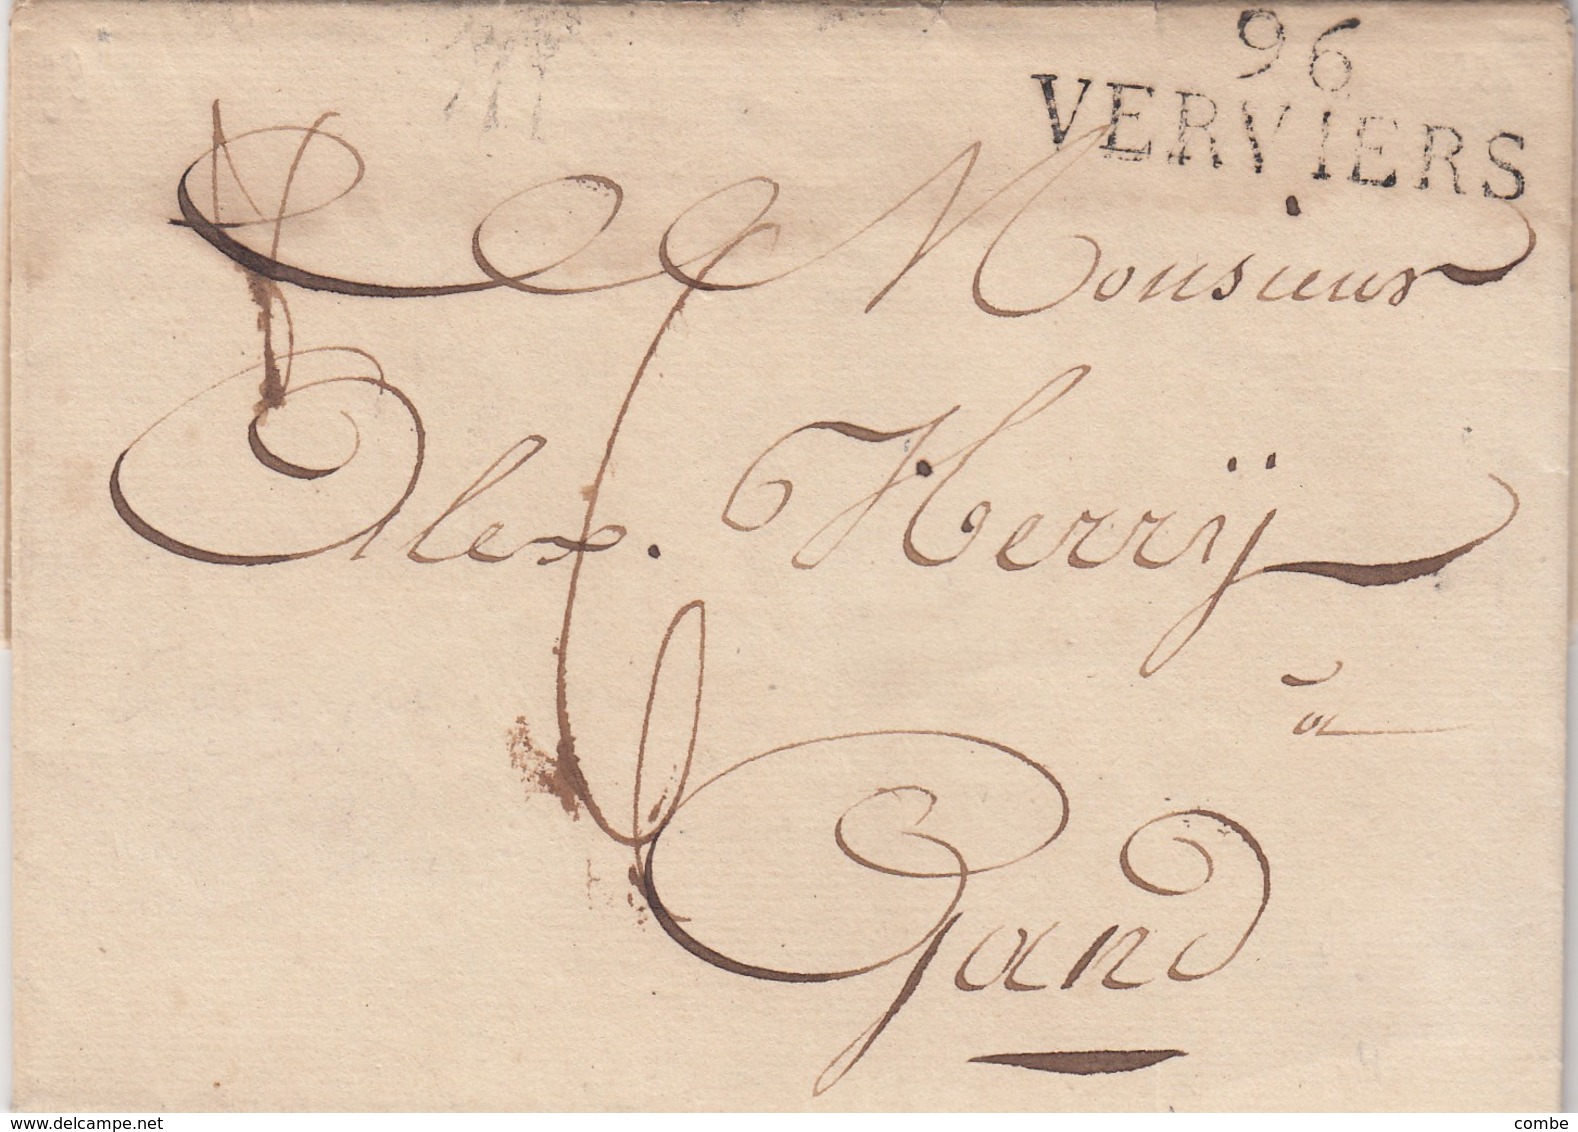 96
VERVIERS
Monsieur
Alex. Herrÿ
à
Gand
www.delcampe.net
combe